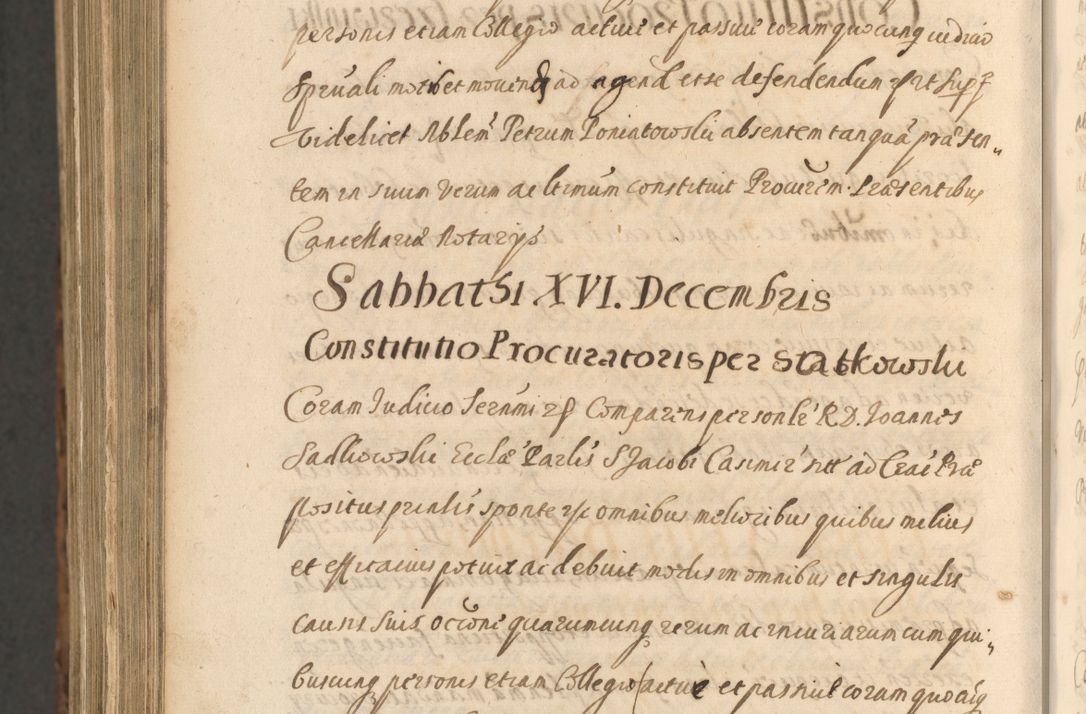 personis etiam Collegio active et passive coram quocunq iudicio
Spruali motis et movendis ad agend et se defendendum
Videlicet Nblem Petrum Poniatowski absentem tanquã præsen„
tem in suum verum ac ltimum constituit Procurem. Præsentibus
Cancellariæ Notarijs
Sabbathi XVI. Decembris
Constitutio Procuratoris per Statkowski
Coram Iudicio Serñmi Comparens personlr R D. Ioannes
Sadkowski Ecclæ Parlis S Jacobi Casimir ad Præ
positus prnlis sponte omnibus melioribus quibus melius
et efficacius potuit ac debuit modis in omnibus et singulis
causis suis occōne quarumcunq rerum ac iniuriarum cum qui„
buscunq personis etiam Collegio active et passive coram quocuq